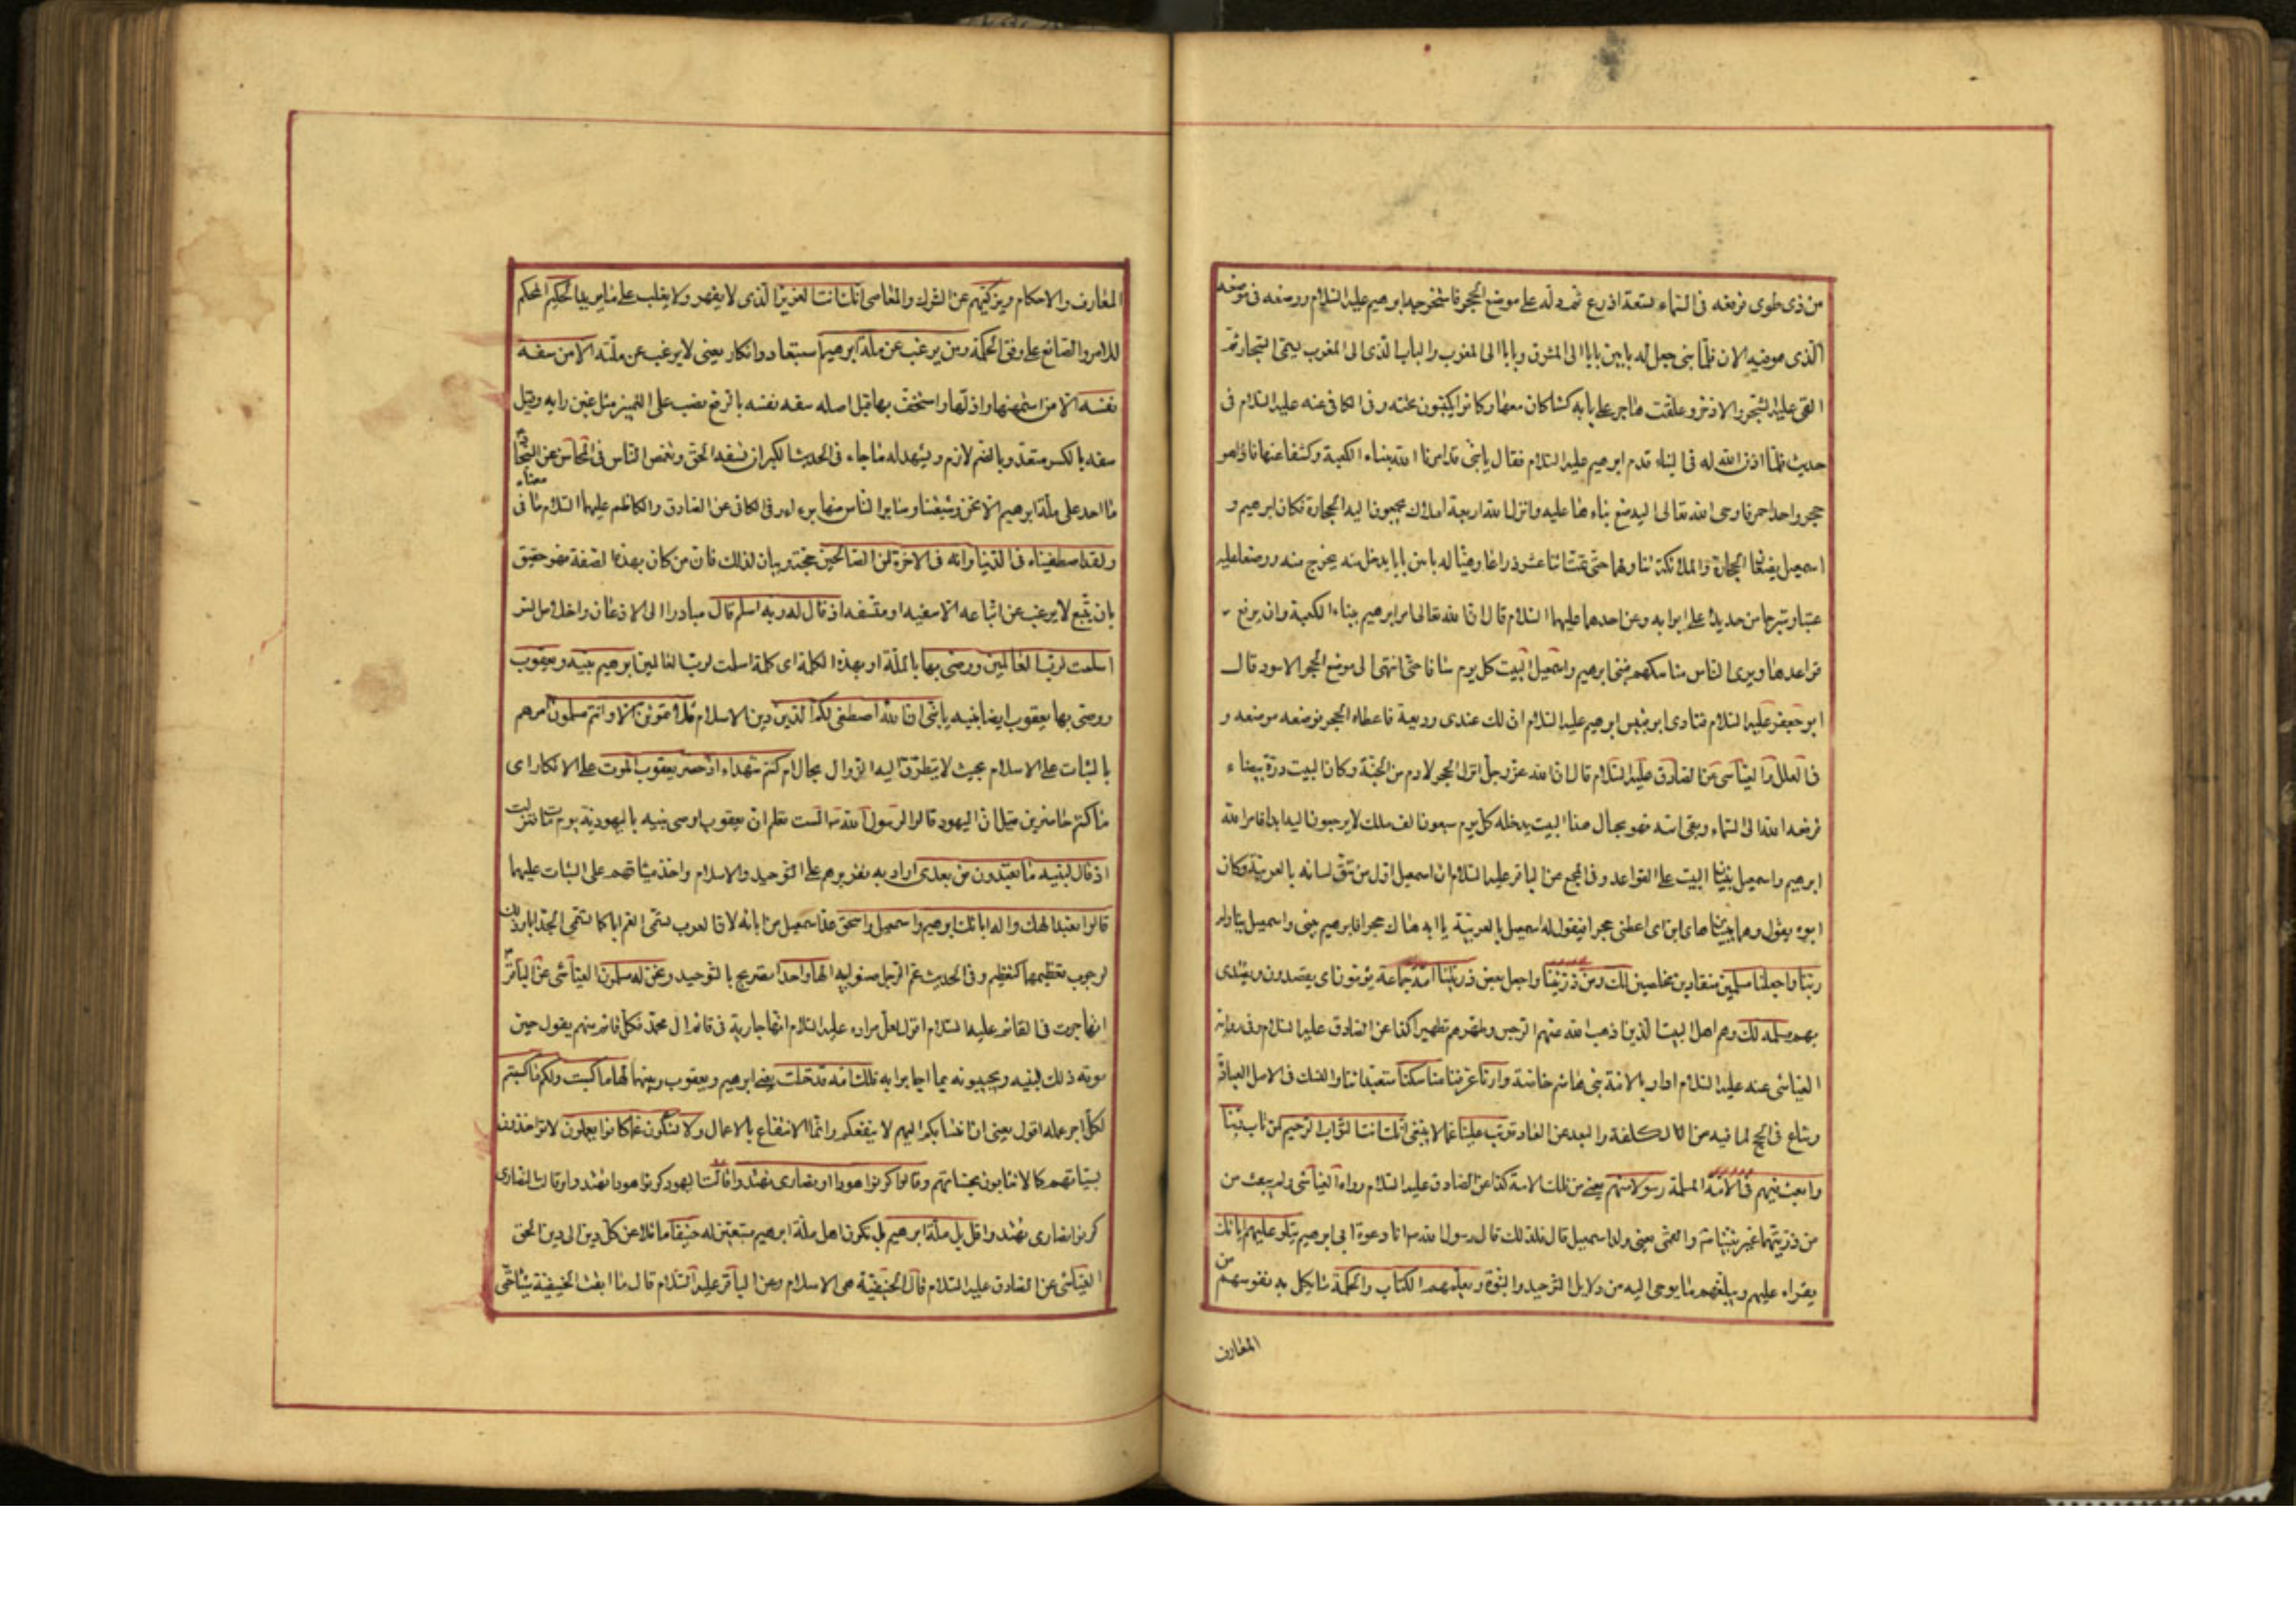 من ذى طوى فرفعه فى السماء تسعة اذرع ثم دله على موضع الحجر فاستخرجه ابرهيم عليه السلام ووضعه فى موضعه
الذى هو فيه الان فلما بنى جعل له بابين بابا الى المشرق وبابا الى المغرب والباب الذى الى المغرب يسمى المستجار ثم
القى عليه الشجر والاذخر وعلقت هاجر على بابه كساء كان معها وكانوا يكنون تحته وفى الكافى عنه عليه السلام فى
حديث فلما اذن الله له فى البناء قدم ابرهيم عليه السلام فقال يا بنى قد امرنا الله ببناء الكعبة وكشفا عنها فاذا هو
حجر واحد احمر فاوحى الله تعالى اليه ضع بناءها عليه وانزل الله اربعة املاك يجمعون اليه الحجارة فكان ابرهيم و
اسمعيل يضعان الحجارة والملائكة تناولهما حتى تمت اثنا عشر ذراعا وهيئا له بابين بابا يدخل منه وبابا يخرج منه ووضعا عليه
عتبا وشرجا من حديد على ابوابه وعن احدهما عليهما السلام قال ان الله تعالى امر ابرهيم ببناء الكعبة وان يرفع
قواعدها ويرى الناس مناسكهم فبنى ابرهيم واسمعيل البيت كل يوم سافا حتى انتهى الى موضع الحجر الاسود قال
ابو جعفر عليه السلام فنادى ابو قبيس ابرهيم عليه السلام ان لك عندى وديعة فاعطاه الحجر فوضعه موضعه و
فى العلل والعياشى عن الصادق عليه السلام قال ان الله عز وجل انزل الحجر لادم من الجنة وكان البيت درة بيضاء
فرفعه الله الى السماء وبقى اسه فهو بحيال هذا البيت يدخله كل يوم سبعون الف ملك لا يرجعون اليه ابدا فامر الله
ابرهيم واسمعيل ببنيان البيت على القواعد وفى المجمع عن الباقر عليه السلام ان اسمعيل اول من شق لسانه بالعربية وكان
ابوه يقول وهما يبنيان هاى ابن اى اعطنى حجرا فيقول له اسمعيل بالعربية يا ابه هاك حجرا فابرهيم يبنى واسمعيل يناوله
ربنا واجعلنا مسلمين منقادين مخلصين لك ومن ذريتنا واجعل بعض ذريتنا امة جماعة يؤمون اى يقصدون ويقتدى
بهم مسلمة لك وهم اهل البيت الذين اذهب الله عنهم الرجس وطهرهم تطهيرا كذا عن الصادق عليه السلام وفى رواية
العياشى عنه عليه السلام اراد بالامة بنى هاشم خاصة وارنا عرفنا مناسكنا متعبداتنا والنسك فى الاصل العبادة
وشاع فى الحج لما فيه من الكلفة والبعد عن العادة وتب علينا عما لا ينبغى انك انت التواب الرحيم لمن تاب ربنا
وابعث فيهم فى الامة المسلمة رسولا منهم يعنى من تلك الامة كذا عن الصادق عليه السلام رواه العياشى ولم يبعث من
من ذريتهما غير نبينا ص والقمى يعنى ولد اسمعيل قال فلذلك قال رسول الله ص انا دعوة ابى ابرهيم يتلو عليهم اياتك
يقراء عليهم ويبلغهم ما يوحى اليه من دلايل التوحيد والنبوة ويعلمهم الكتاب والحكمة ما يكمل به نفوسهم من
المعارف
المعارف والاحكام ويزكيهم عن الشرك والمعاصى انك انت العزيز الذى لا يقهر ولا يغلب على ما يريد الحكيم المحكم
للامر والصانع على وفق الحكمة ومن يرغب عن ملة ابرهيم استبعاد وانكار يعنى لا يرغب عن ملته الا من سفه
نفسه الا من استمهنها واذلها واستخف بها قيل اصله سفه نفسه بالرفع نصب على التمييز مثل غبن رايه وقيل
سفه بالكسر متعد وبالضم لازم ويشهد له ما جاء فى الحديث الكبر ان تسفه الحق وتغمص الناس فى المحاسن عن السجاد
ما احد على ملة ابرهيم الا نحن وشيعتنا وساير الناس منها براء وفى الكافى عن الصادق والكاظم عليهما السلام ما فى معناه
ولقد اصطفيناه فى الدنيا وانه فى الاخرة لمن الصالحين حجة وبيان لذلك فان من كان بهذه الصفة فهو حقيق
بان يتبع لا يرغب عن اتباعه الا سفيه او متسفه اذ قال له ربه اسلم قال مبادرا الى الاذعان واخلاص السر
اسلمت لرب العالمين ووصى بها بالملة او بهذه الكلمة اى كلمة اسلمت لرب العالمين ابرهيم بنيه ويعقوب
ووصى بها يعقوب ايضا بنيه يا بنى ان الله اصطفى لكم الدين دين الاسلام فلا تموتن الا وانتم مسلمون امرهم
بالثبات على الاسلام بحيث لا يتطرق اليه الزوال بحال ام كنتم شهداء اذ حضر يعقوب الموت على الانكار اى
ما كنتم حاضرين قيل ان اليهود قالوا لرسول الله ص الست تعلم ان يعقوب اوصى بنيه باليهودية يوم مات فنزلت
اذ قال لبنيه ما تعبدون من بعدى اراد به تقريرهم على التوحيد والاسلام واخذ ميثاقهم على الثبات عليهما
قالوا نعبد الهك واله ابائك ابرهيم واسمعيل واسحق عد اسمعيل من ابائه لان العرب تسمى العم ابا كما تسمى الجد ابا وذلك
لوجوب تعظيمهما كتعظيمه وفى الحديث عم الرجل صنو ابيه الها واحدا تصريح بالتوحيد ونحن له مسلمون العياشى عن الباقر
انها جرت فى القائم عليه السلام اقول لعل مراده عليه السلام انها جارية فى قائم ال محمد فكل قائم منهم يقول حين
موته ذلك لبنيه ويجيبونه بما اجابوا به تلك امة قد خلت يعنى ابرهيم ويعقوب وبنيهما لها ما كسبت ولكم ما كسبتم
لكل اجر عمله اقول يعنى ان انتسابكم اليهم لا ينفعكم وانما الانتفاع بالاعمال ولا تسئلون عما كانوا يعملون لا تؤاخذون
بسيئاتهم كما لا تثابون بحسناتهم وقالوا كونوا هودا او نصارى تهتدوا قالت اليهود كونوا هودا تهتدوا وقالت النصارى
كونوا نصارى تهتدوا قل بل ملة ابرهيم بل نكون اهل ملة ابرهيم متبعين له حنيفا مائلا عن كل دين الى دين الحق
العياشى عن الصادق عليه السلام قال الحنيفية هى الاسلام وعن الباقر عليه السلام قال ما ابقت الحنيفية شيئا حتى